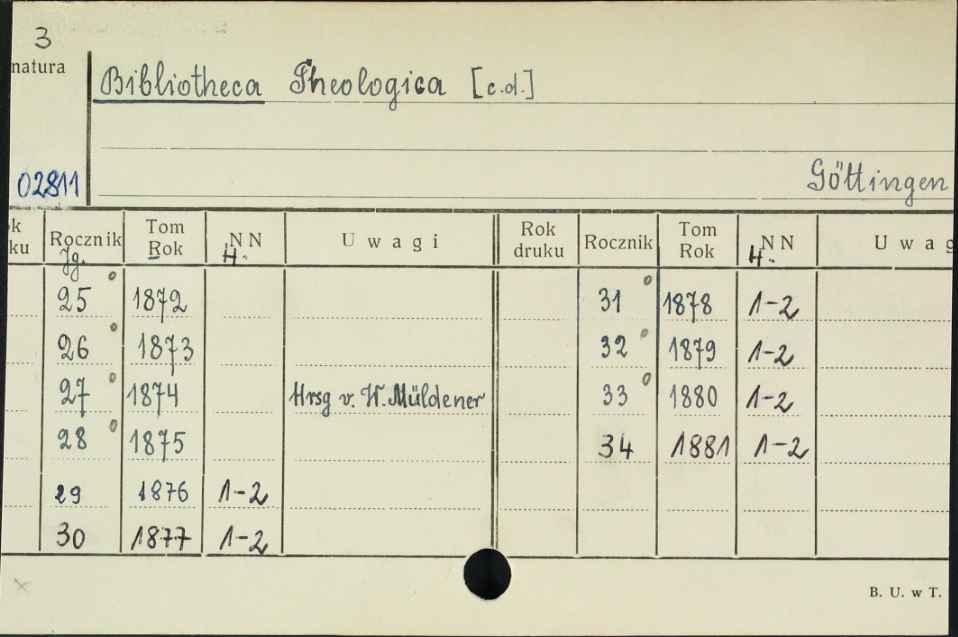 3
natura
Bibliotheca Theologica [c.d.]
02811
Göttingen
k ku Rocznik Tom Rok NN Uwagi Rok druku Rocznik Tom Rok NN Uwag
Jg. H. H.
25° 1872 31° 1878 1-2
26° 1873 32° 1879 1-2
27° 1874 Hrsg v. W. Müldener 33° 1880 1-2
28° 1875 34 1881 1-2
29 1876 1-2
30 1877 1-2
B. U. w T.